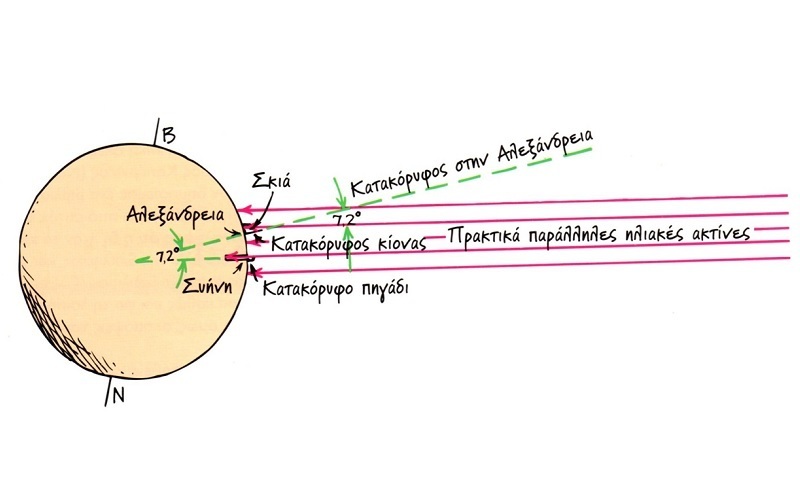 Β
Κατακόρυφος στην Αλεξάνδρεια
Σκιά
Αλεξάνδρεια
7,2°
Κατακόρυφος κίονας
Πρακτικά παράλληλες ηλιακές ακτίνες
7,2°
Συήνη
Κατακόρυφο πηγάδι
Ν